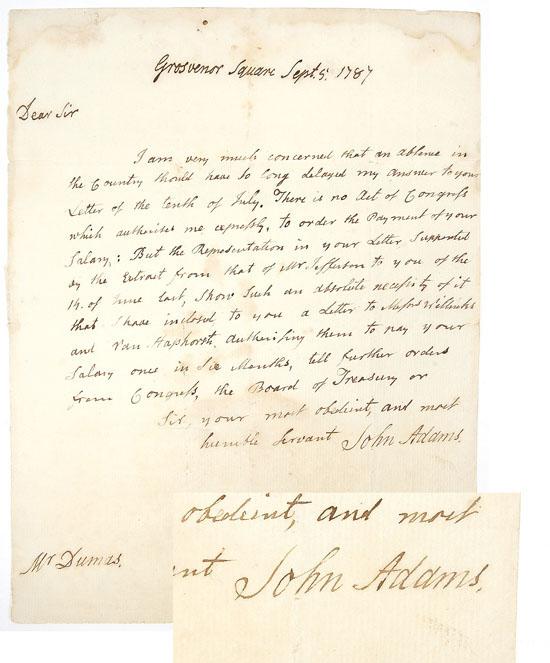 Grosvenor Square Sept. 5. 1787
Dear Sir
I am very much concerned that an absence in
the Country should have so long delayed my Answer to your
Letter of the tenth of July. There is no Act of Congress
which authorises me expressly, to order the Payment of your
Salary,: But the Representation in your Letter supported
by the Extract from that of Mr. Jefferson to you of the
14. of June last, show such an absolute necessity of it
that I have inclosed to you a Letter to Messrs Willinks
and Van Staphorst, authorising them to pay your
Salary once in Six Months, till further orders
from Congress, the Board of Treasury or
Sir, your most obedient, and most
humble servant John Adams.
Mr Dumas.
obedient, and most
nt John Adams.